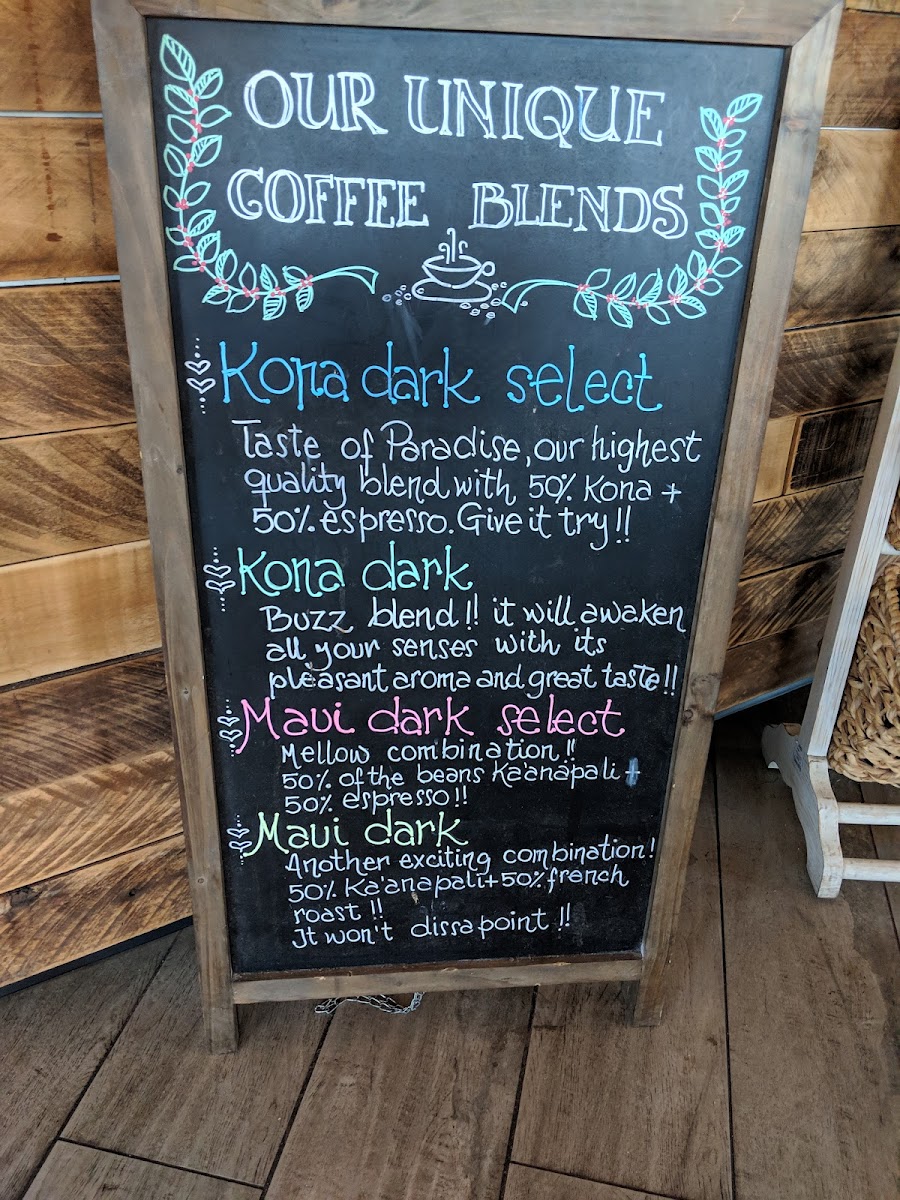 OUR UNIQUE
COFFEE BLENDS
Kona dark select
Taste of Paradise, our highest
quality blend with 50% Kona +
50% espresso. Give it try!!
Kona dark
Buzz blend!! it will awaken
all your senses with its
pleasant aroma and great taste!!
Maui dark select
Mellow combination!!
50% of the beans Ka'anapali +
50% espresso!!
Maui dark
Another exciting combination!
50% Ka'anapali+50% french
roast!!
It won't dissapoint!!